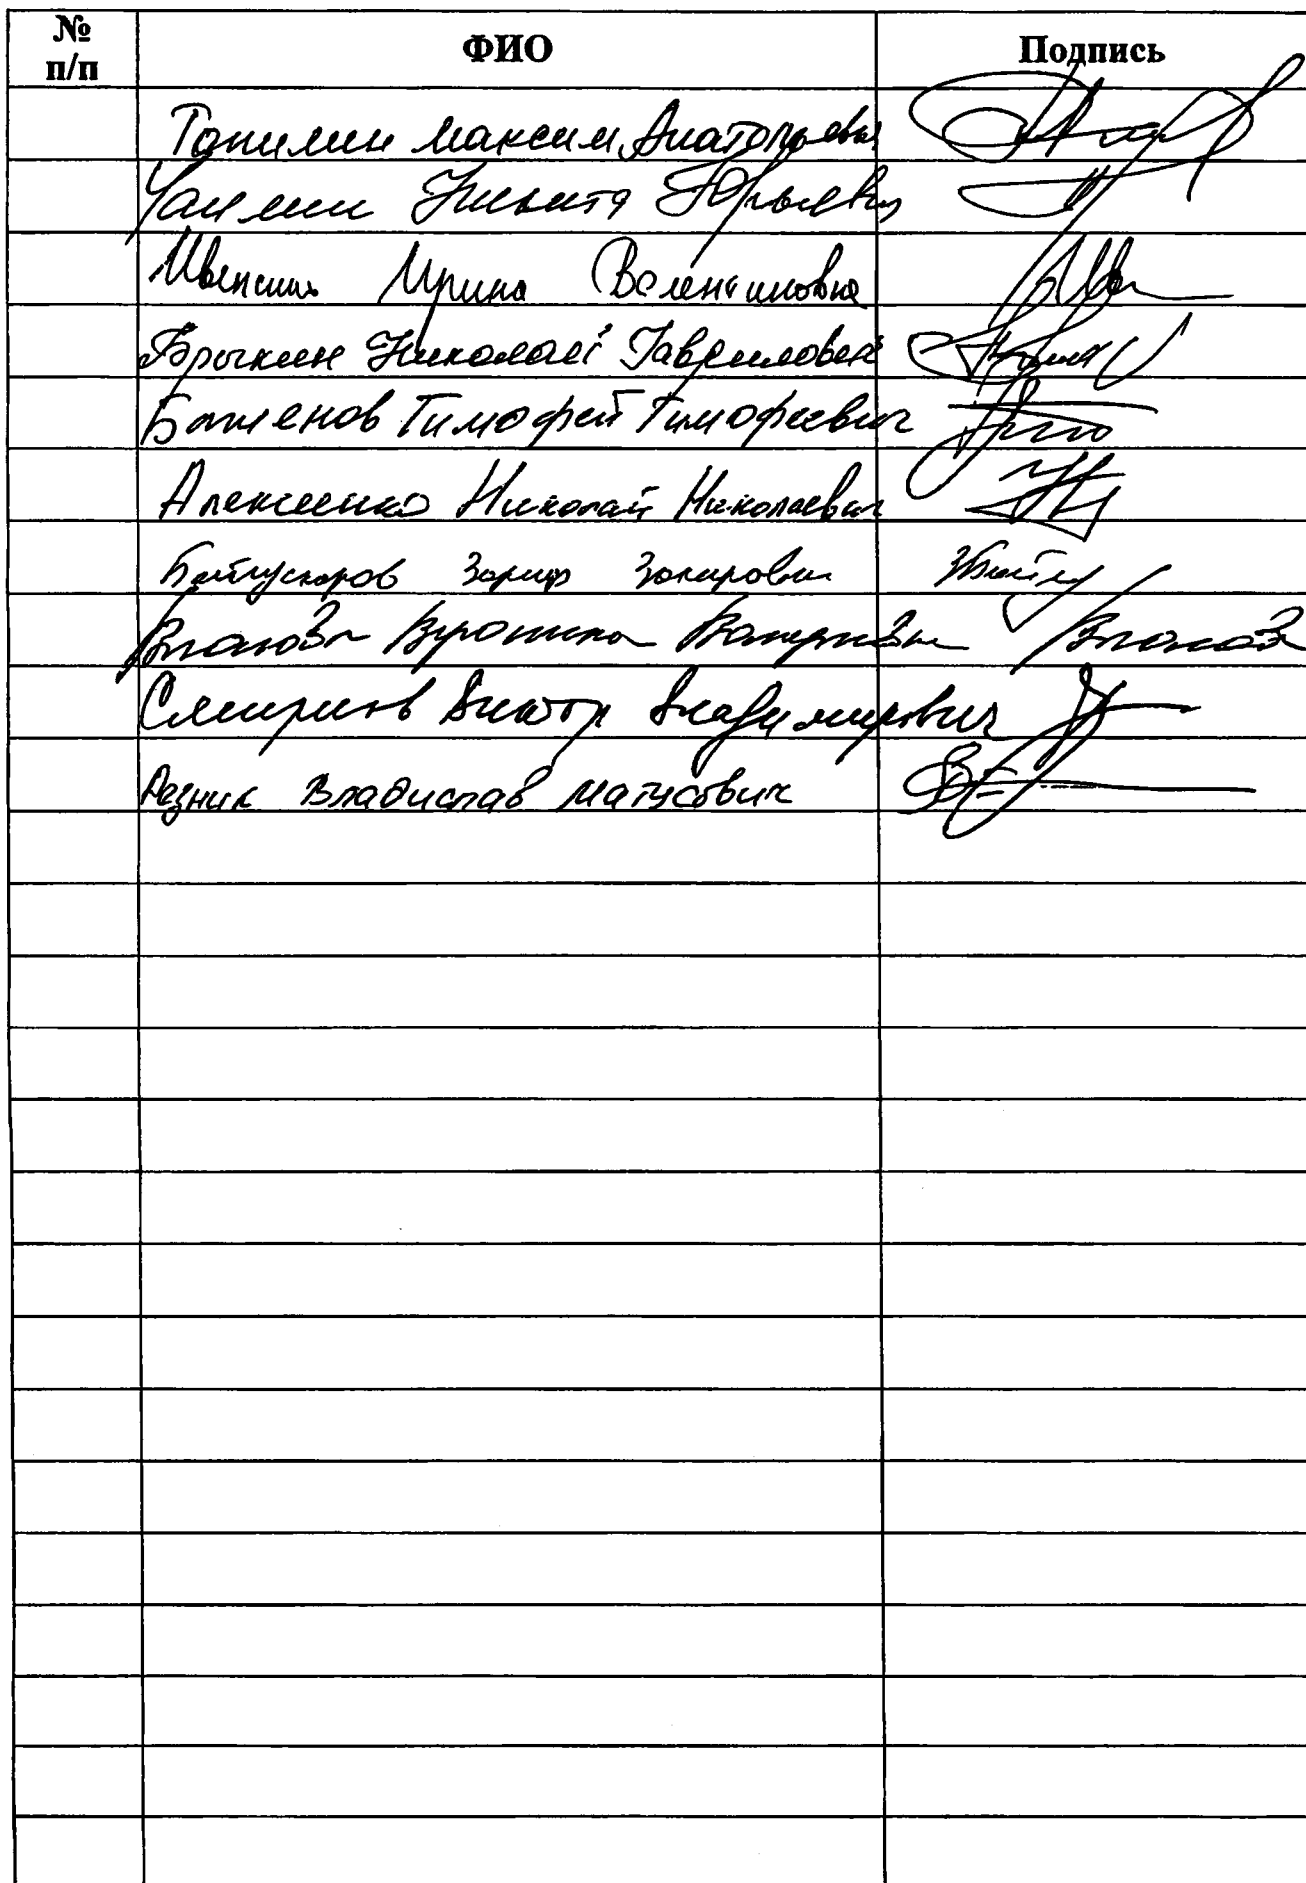 № п/п ФИО Подпись
Топилин Максим Анатольевич
Чаплин Никита Юрьевич
Ирина Валентиновна
Брыкин Николай Гаврилович
Баженов Тимофей Тимофеевич
Алексеенко Николай Николаевич
Байгускаров Зариф Закирович
Власова Вероника Валериевна Власова
Смирнов Виктор Владимирович
Резник Владислав Матусович